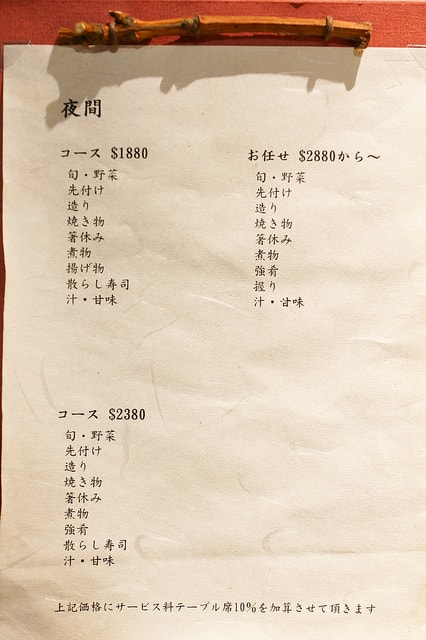 夜間
コース $1880
旬・野菜
先付け
造り
焼き物
箸休み
煮物
揚げ物
散らし寿司
汁・甘味
お任せ $2880から～
旬・野菜
先付け
造り
焼き物
箸休み
煮物
強肴
握り
汁・甘味
コース $2380
旬・野菜
先付け
造り
焼き物
箸休み
煮物
強肴
散らし寿司
汁・甘味
上記価格にサービス料テーブル席10%を加算させて頂きます